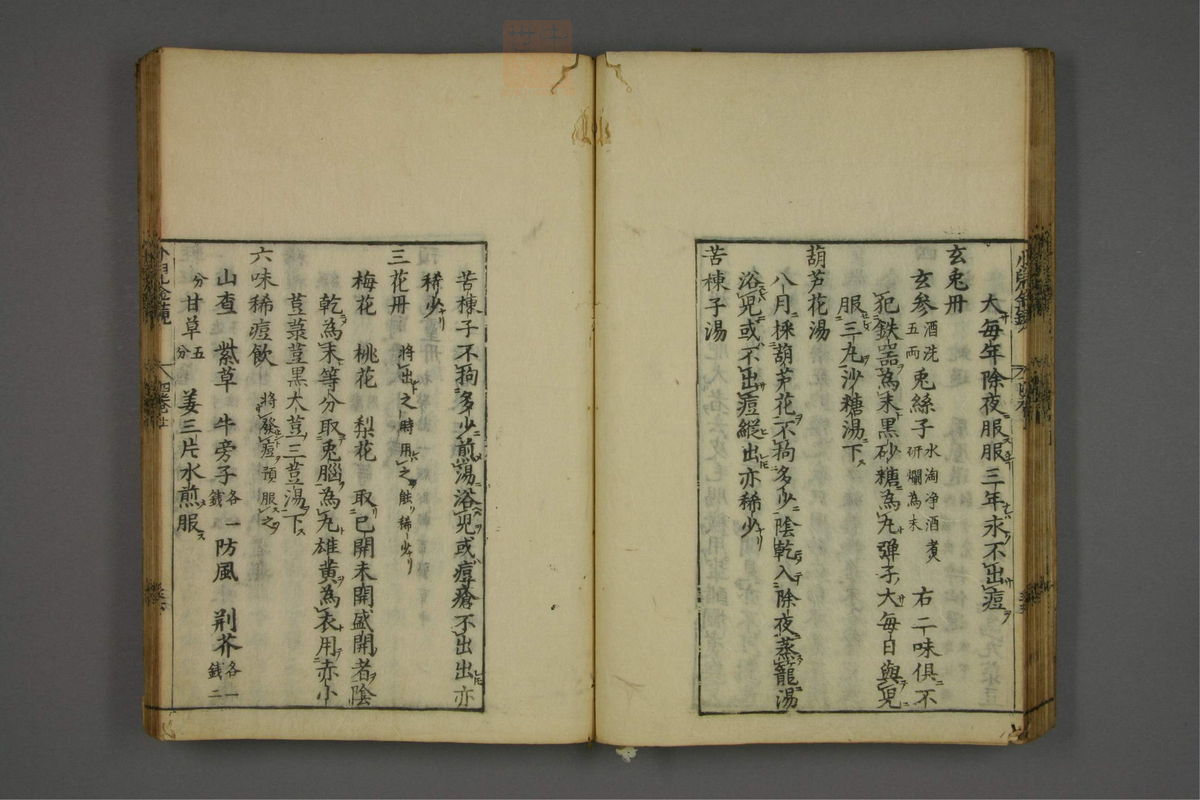 大每年除夜服服三年永不出痘
玄兎丹
玄参酒洗五両兎絲子水淘净酒煑研爛為末右二味俱不
犯鉄器為末黒砂糖為丸弾子大每日與児
服三丸沙糖湯下
葫芦花湯
八月採葫芦花不拘多少陰乾入除夜蒸籠湯
浴児或不出痘縦出亦稀少
苦楝子湯
苦楝子不拘多少煎湯浴児或痘瘡不出出亦
稀少
三花丹將出之時用之能稀少
梅花 桃花 梨花取已開未開盛開者陰
乾為末等分取兎腦為丸雄黄為衣用赤小
荳菉荳黒大荳三荳湯下
六味稀痘飲將發痘預服之
山查 紫草 牛旁子各一錢防風 荆芥各一錢二
分甘草五分 姜三片水煎服